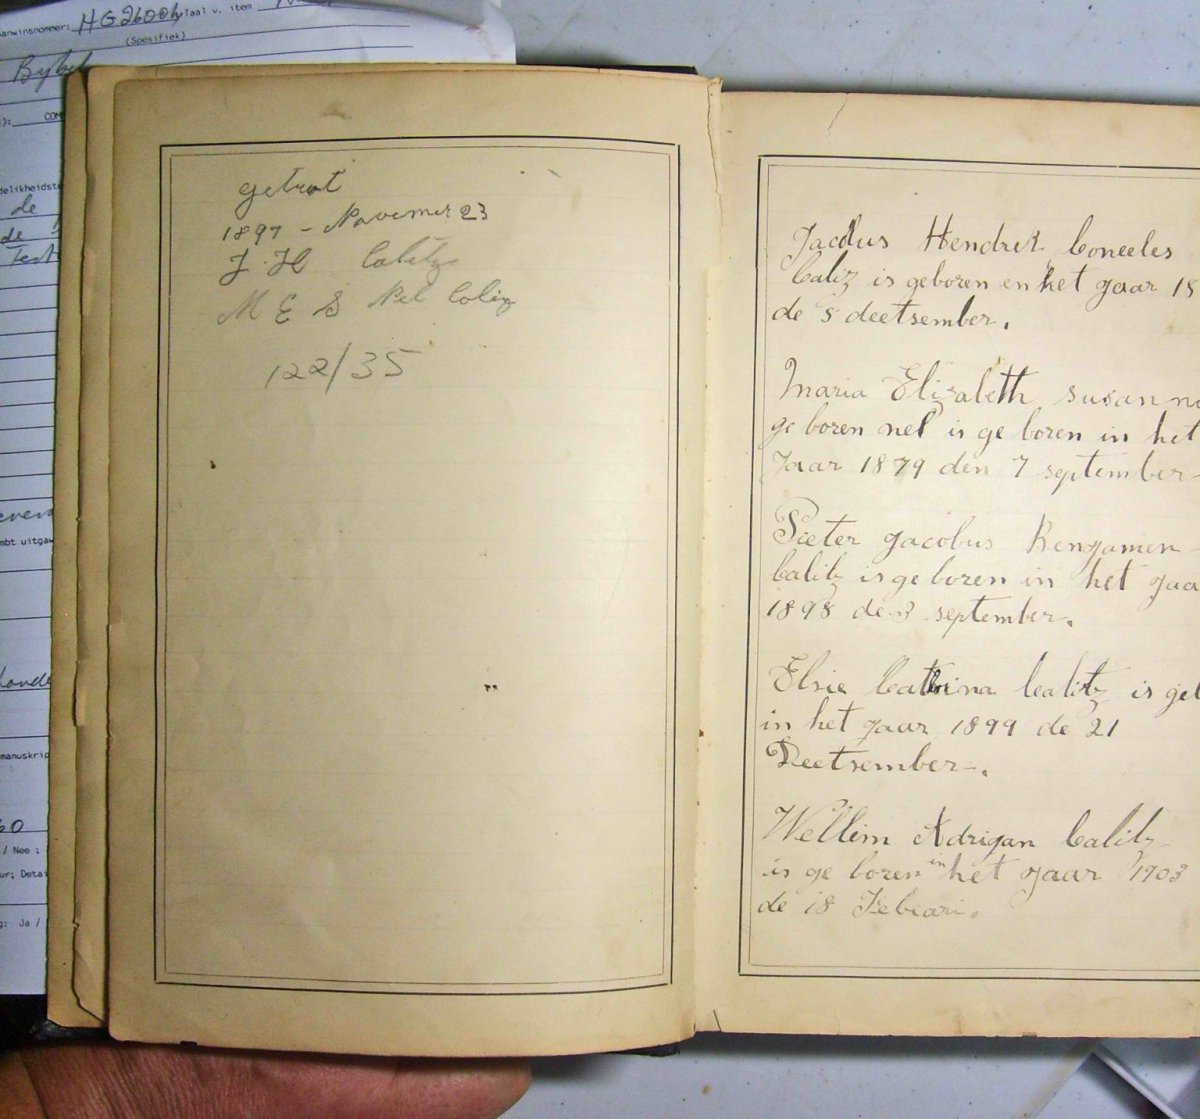 anwinsnommer: HG 2600h Taal v. item
(Spesifiek)
Bybel
COM
de
de
Test
mbt uitgaw
manuskrip
/ Nee :
ur; Detai
g: Ja /
getrut
1897 - Novemer 23
J. H Calitz
M E S Nel Caliz
122/35
Jacobus Hendrik Coneeles
Caliz is geboren en het gaar 18
de 8 deetsember.
Maria Elizabeth susanna
ge boren nel is ge boren in het
Jaar 1879 den 7 september-
Pieter gacobus Bengamen
Calitz is ge boren in het gaa
1898 de 3 september.
Elsie Catrina Calitz is geb
in het gaar 1899 de 21
Deetsember-.
Wellim Adrigan Calitz
is ge boren in het gaar 1903
de 18 Febeari.